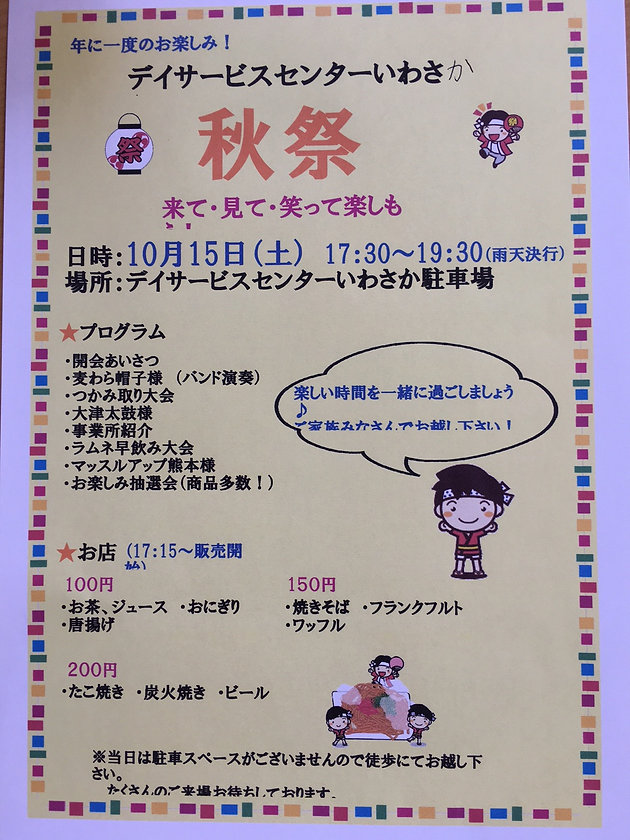 年に一度のお楽しみ！
デイサービスセンターいわさか
祭
秋祭
祭
来て・見て・笑って楽しも
日時：10月15日（土） 17:30～19:30（雨天決行）
場所：デイサービスセンターいわさか駐車場
★プログラム
・開会あいさつ
・麦わら帽子様 （バンド演奏）
・つかみ取り大会
・大津太鼓様
・事業所紹介
・ラムネ早飲み大会
・マッスルアップ熊本様
・お楽しみ抽選会（商品多数！）
楽しい時間を一緒に過ごしましょう
♪
ご家族みなさんでお越し下さい！
★お店 （17:15～販売開
始）
100円
・お茶、ジュース ・おにぎり
・唐揚げ
150円
・焼きそば ・フランクフルト
・ワッフル
200円
・たこ焼き ・炭火焼き ・ビール
※当日は駐車スペースがございませんので徒歩にてお越し下
さい。
たくさんのご来場お待ちしております。